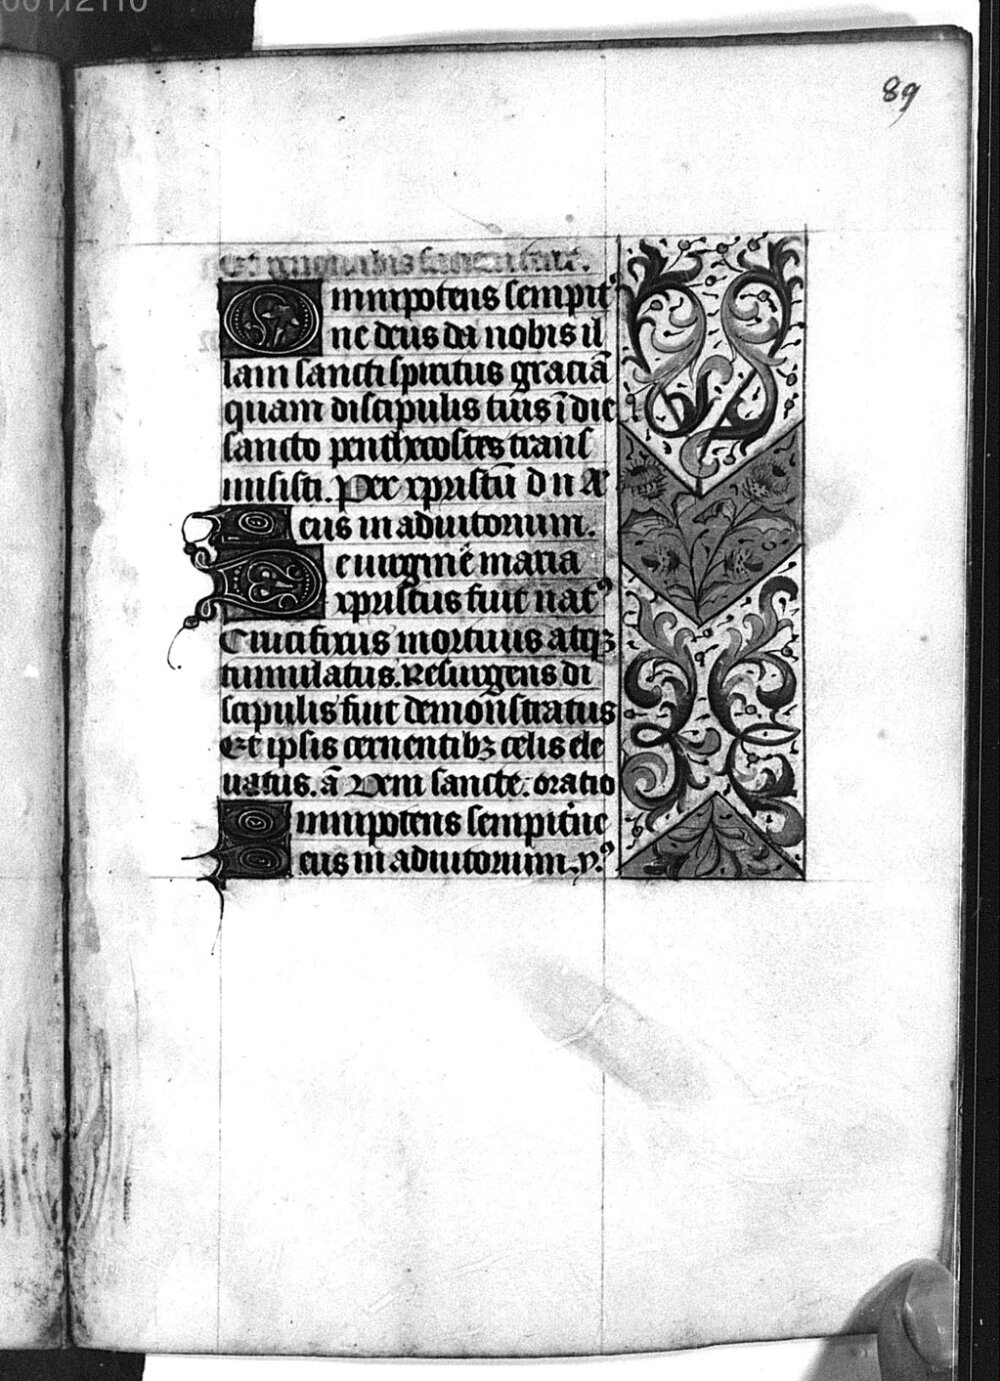 00112110
89
Omnipotens sempit᾽
ne deus da nobis il
lam sancti spiritus graciā
quam discipulis tuis ī die
sancto penthecostes trans
misisti. Per xpristū d n Ae
Deus in adiutorium.
De uirgine maria
xpristus fuit nat᾽
Crucifixus mortuus atqꝫ
tumulatus. Resurgens di
scipulis fuit demonstratus
Et ipsis cernentibꝫ celis ele
uatus. ā Veni sancte. oratio
Omnipotens sempit᾽ne
Deus in adiutorium. y.᾽